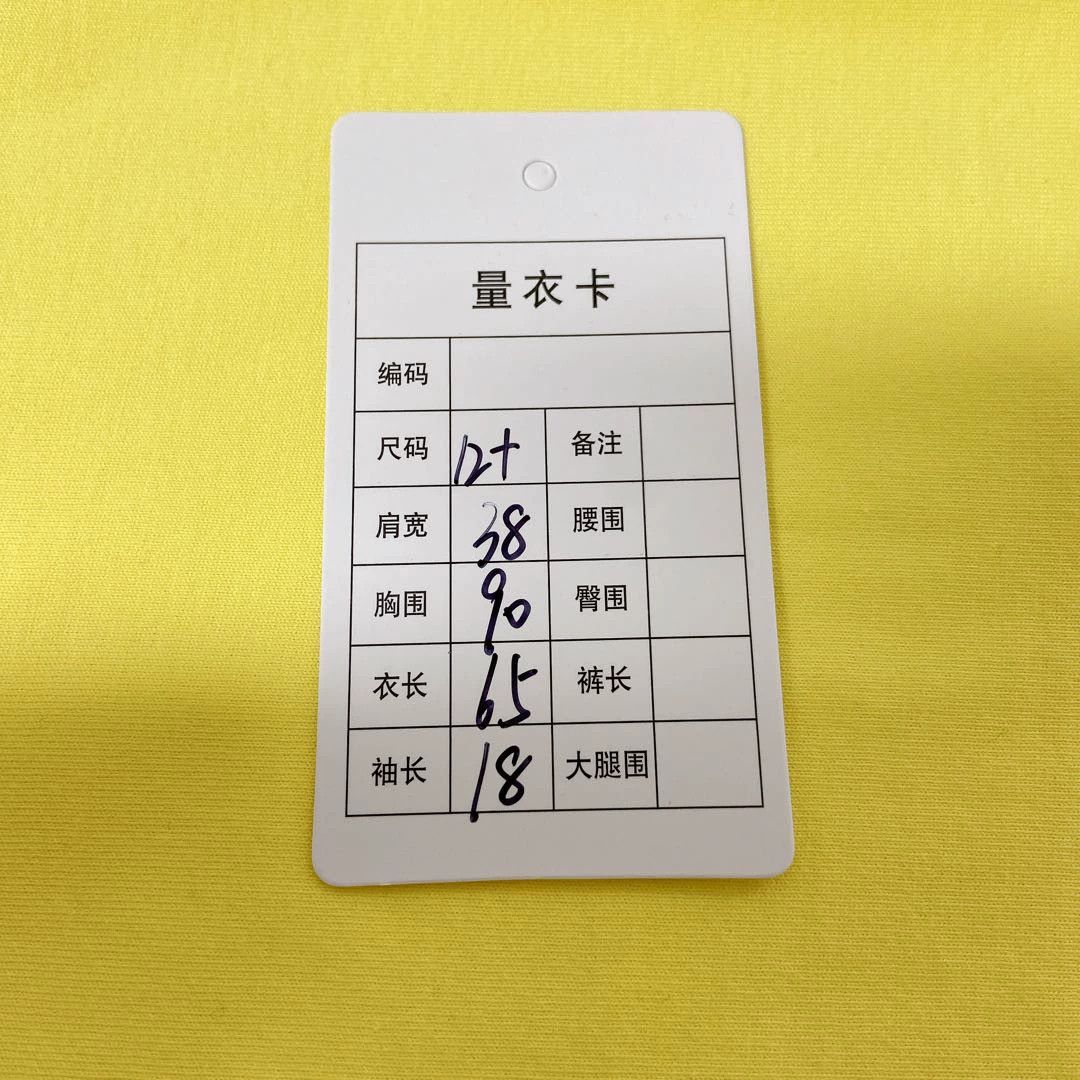 量衣卡
编码
尺码 12+ 备注
肩宽 38 腰围
胸围 90 臀围
衣长 65 裤长
袖长 18 大腿围